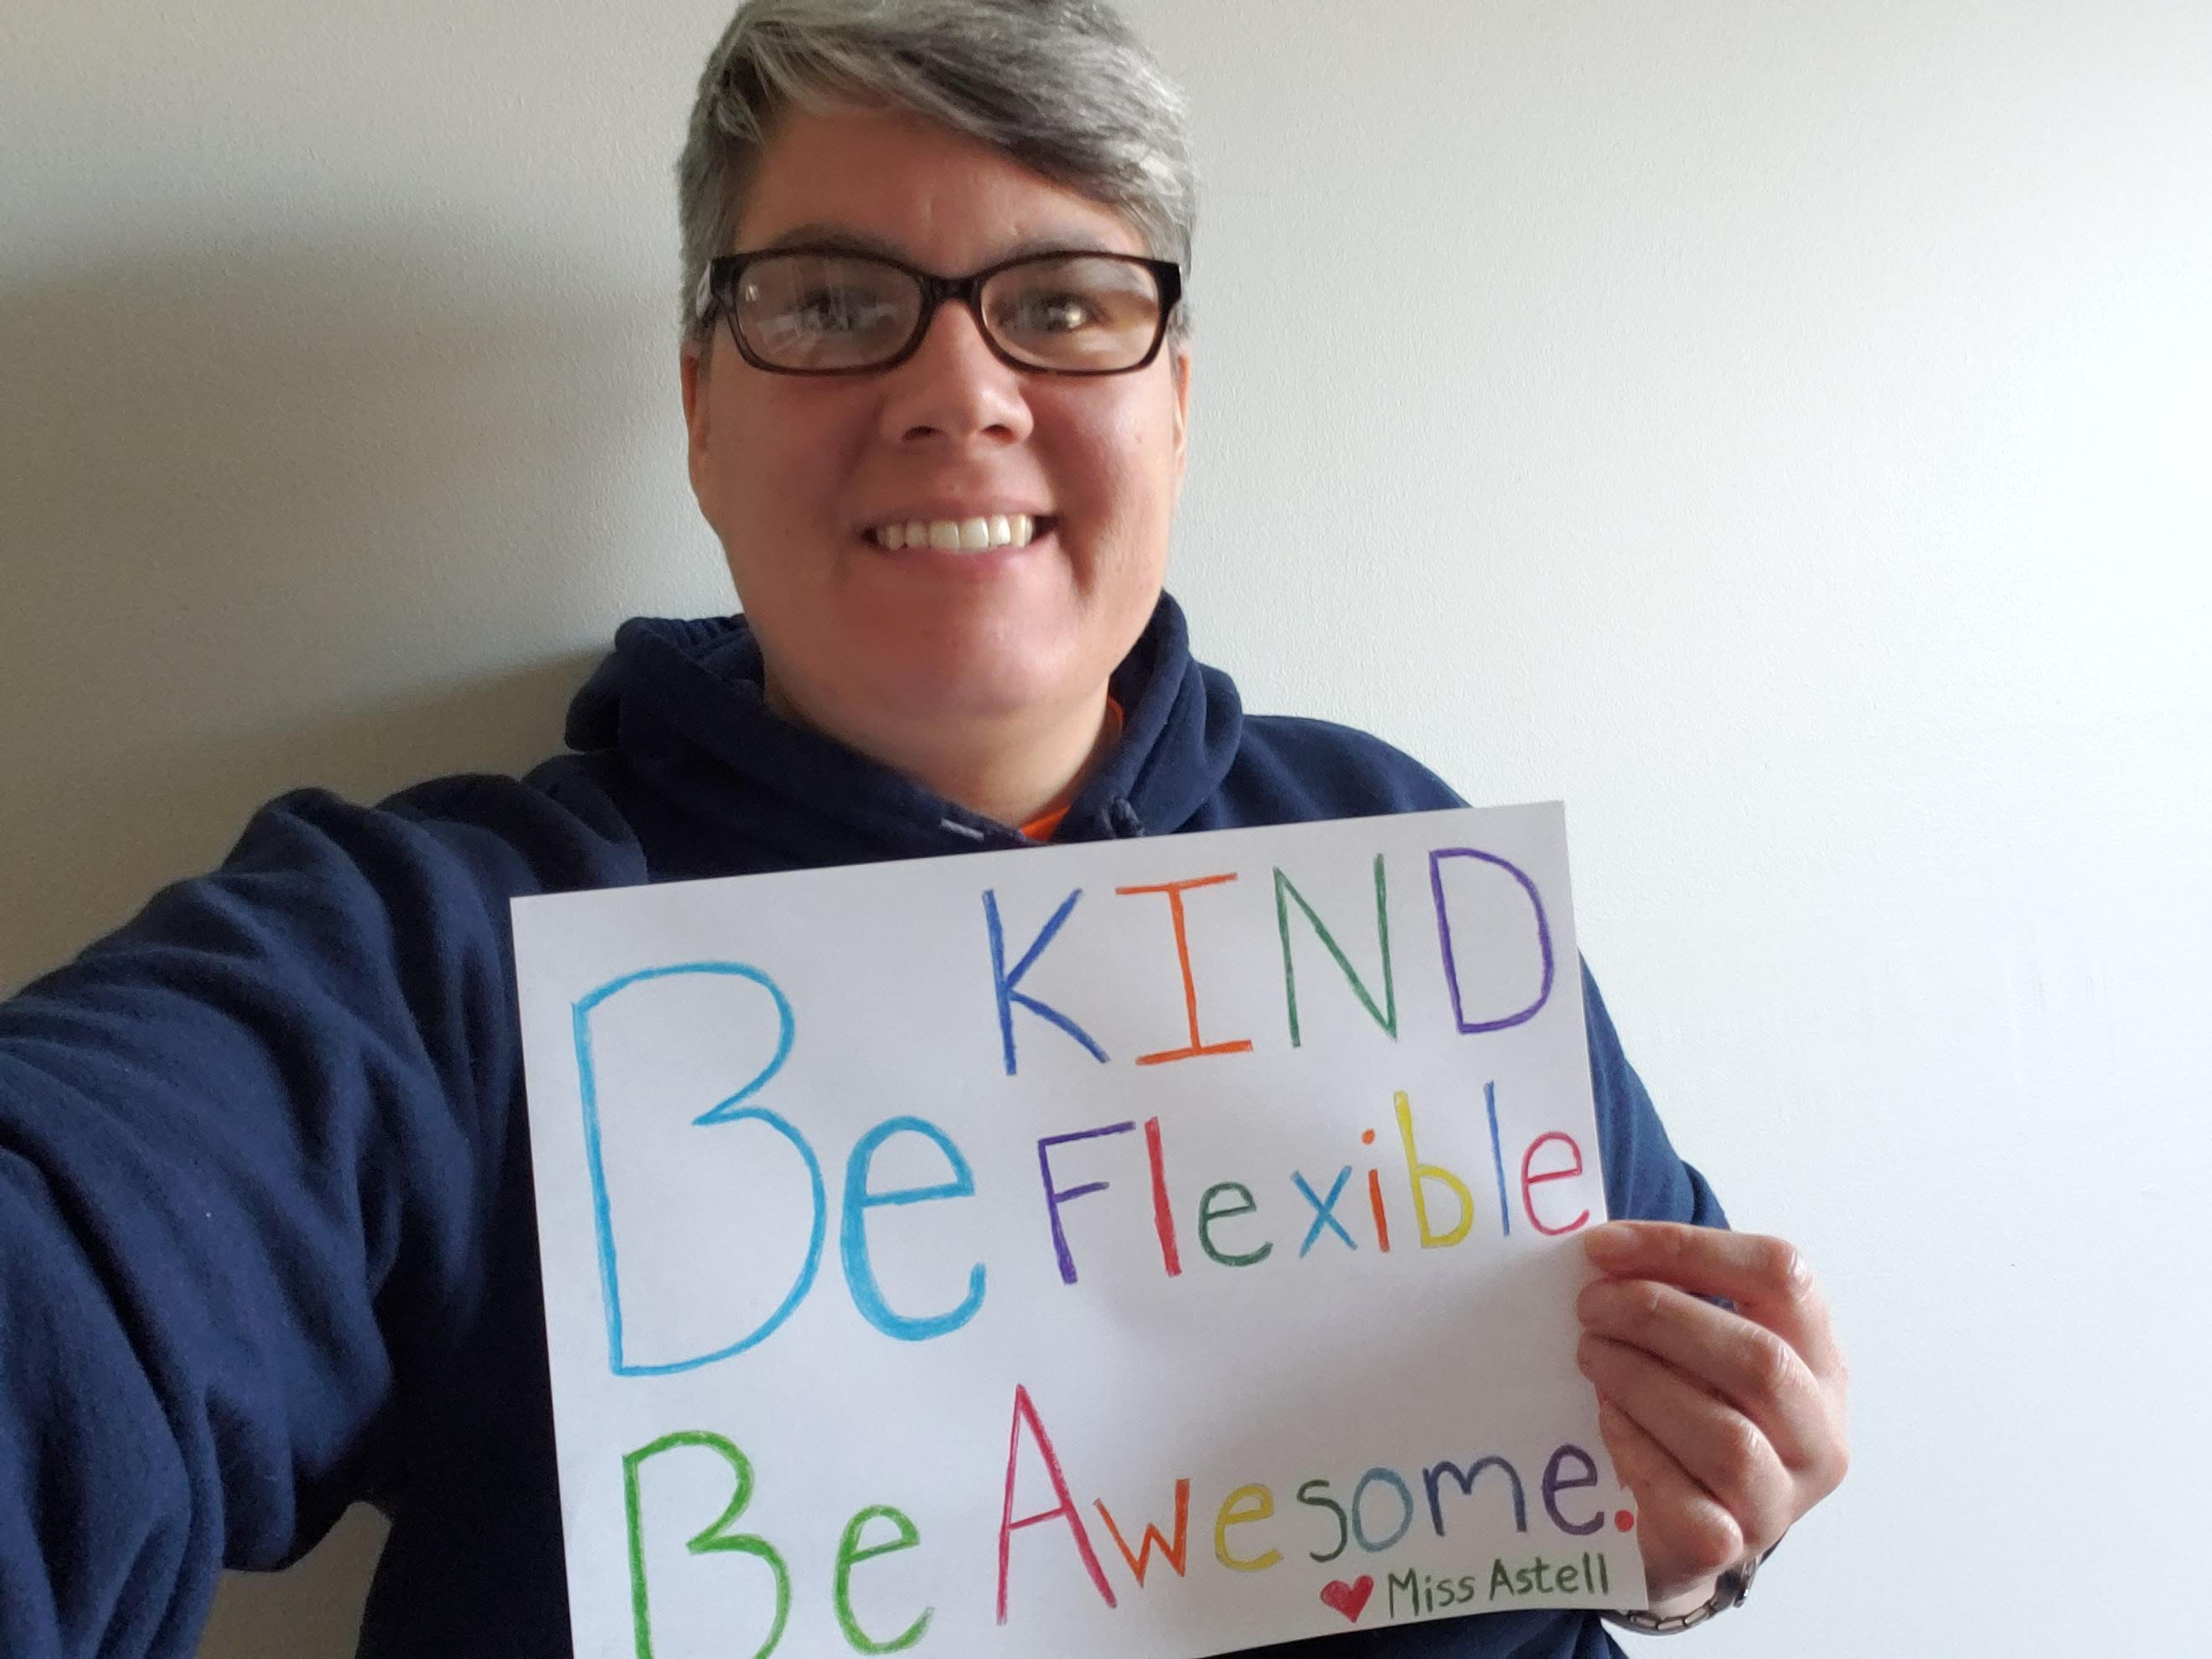 Be KIND
Flexible
Be Awesome.
♥ Miss Astell